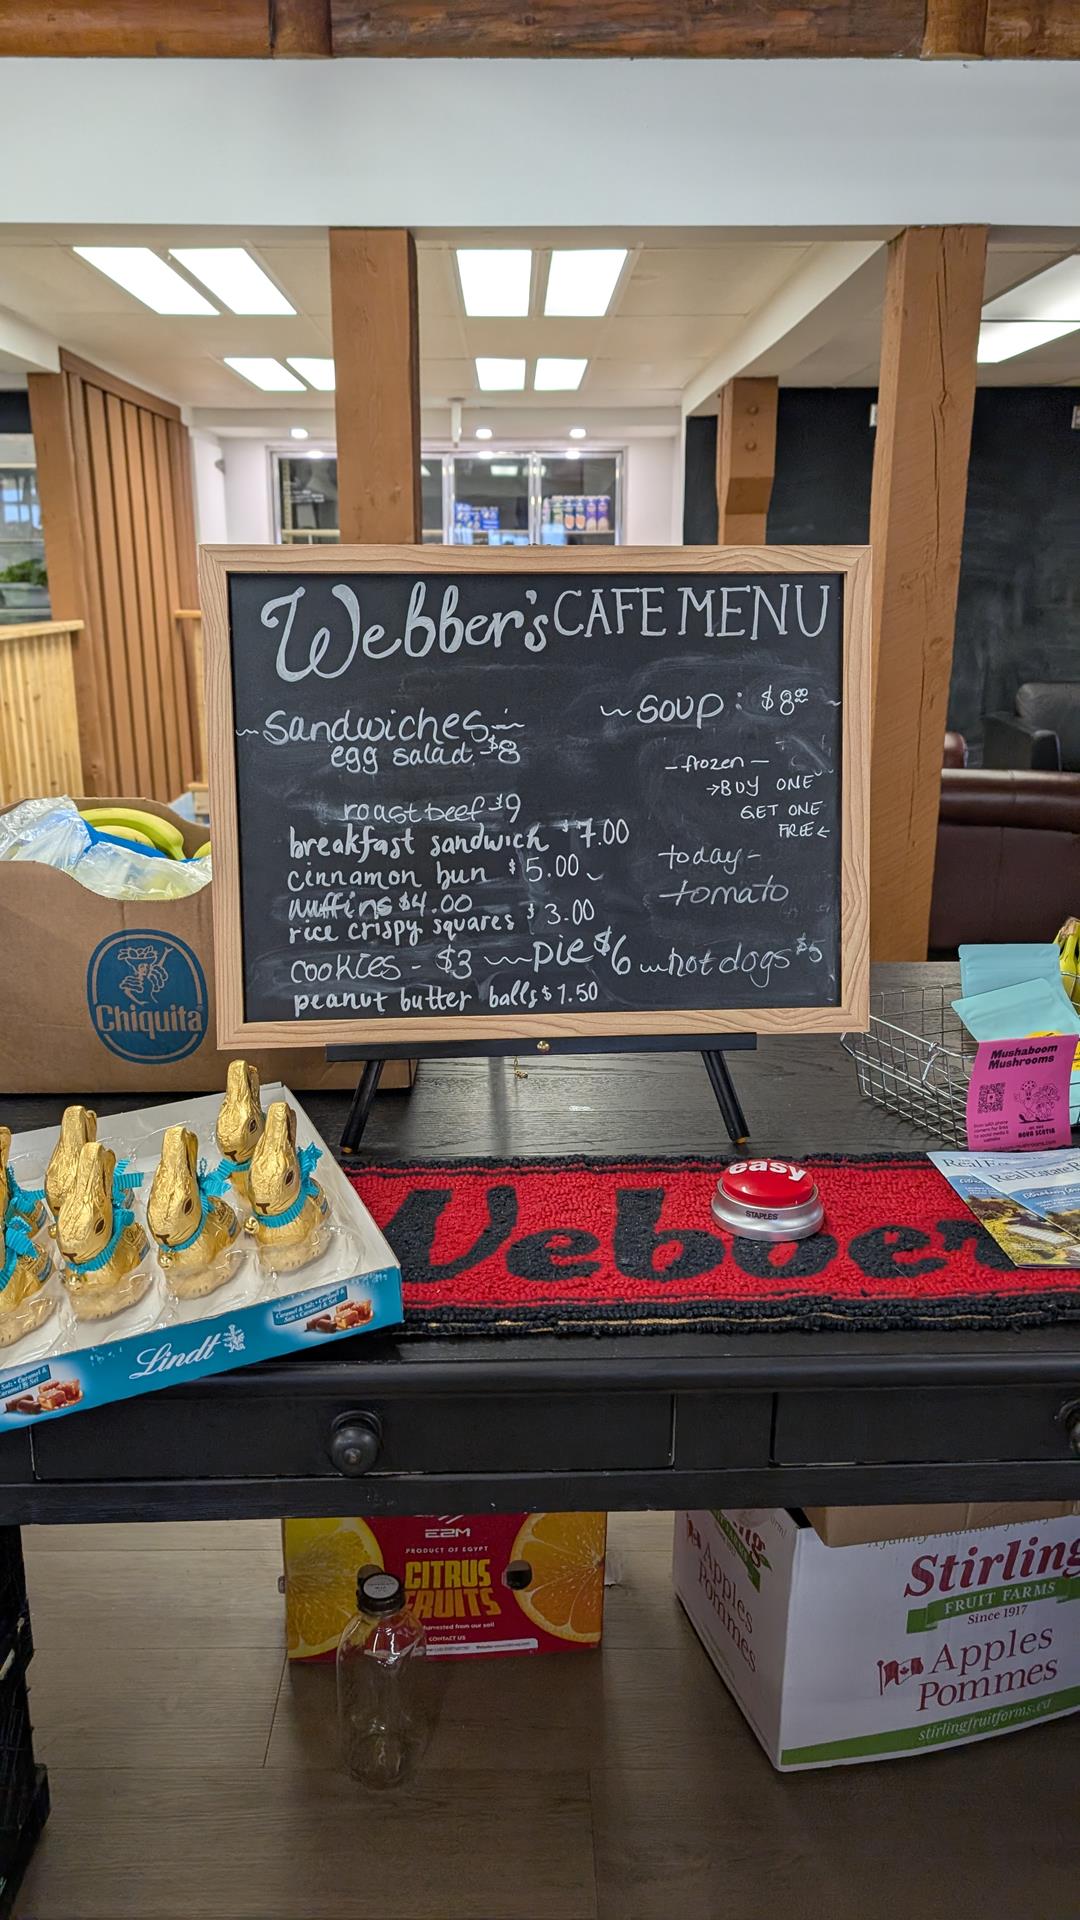 Webber's CAFE MENU
~Sandwiches~
egg salad-$8
roast beef-$9
breakfast sandwich $7.00
cinnamon bun $5.00
muffins $4.00
rice crispy squares $3.00
cookies - $3 ~pie $6
peanut butter balls $1.50
~SOUP: $8.00~
-frozen-
→BUY ONE
GET ONE
FREE←
today-
tomato
~hot dogs $5
Chiquita
Mushaboom
Mushrooms
NOVA SCOTIA
Webber
easy
STAPLES
Real Estate
Lindt
Caramel & Salz • Caramel &
Salt • Caramel & Sel
Salz • Caramel &
Caramel & Sel
E2M
PRODUCT OF EGYPT
CITRUS
FRUITS
harvested from our soil
CONTACT US
Stirling
FRUIT FARMS
Since 1917
Apples
Pommes
stirlingfruitfarms.ca
Apples
Pommes